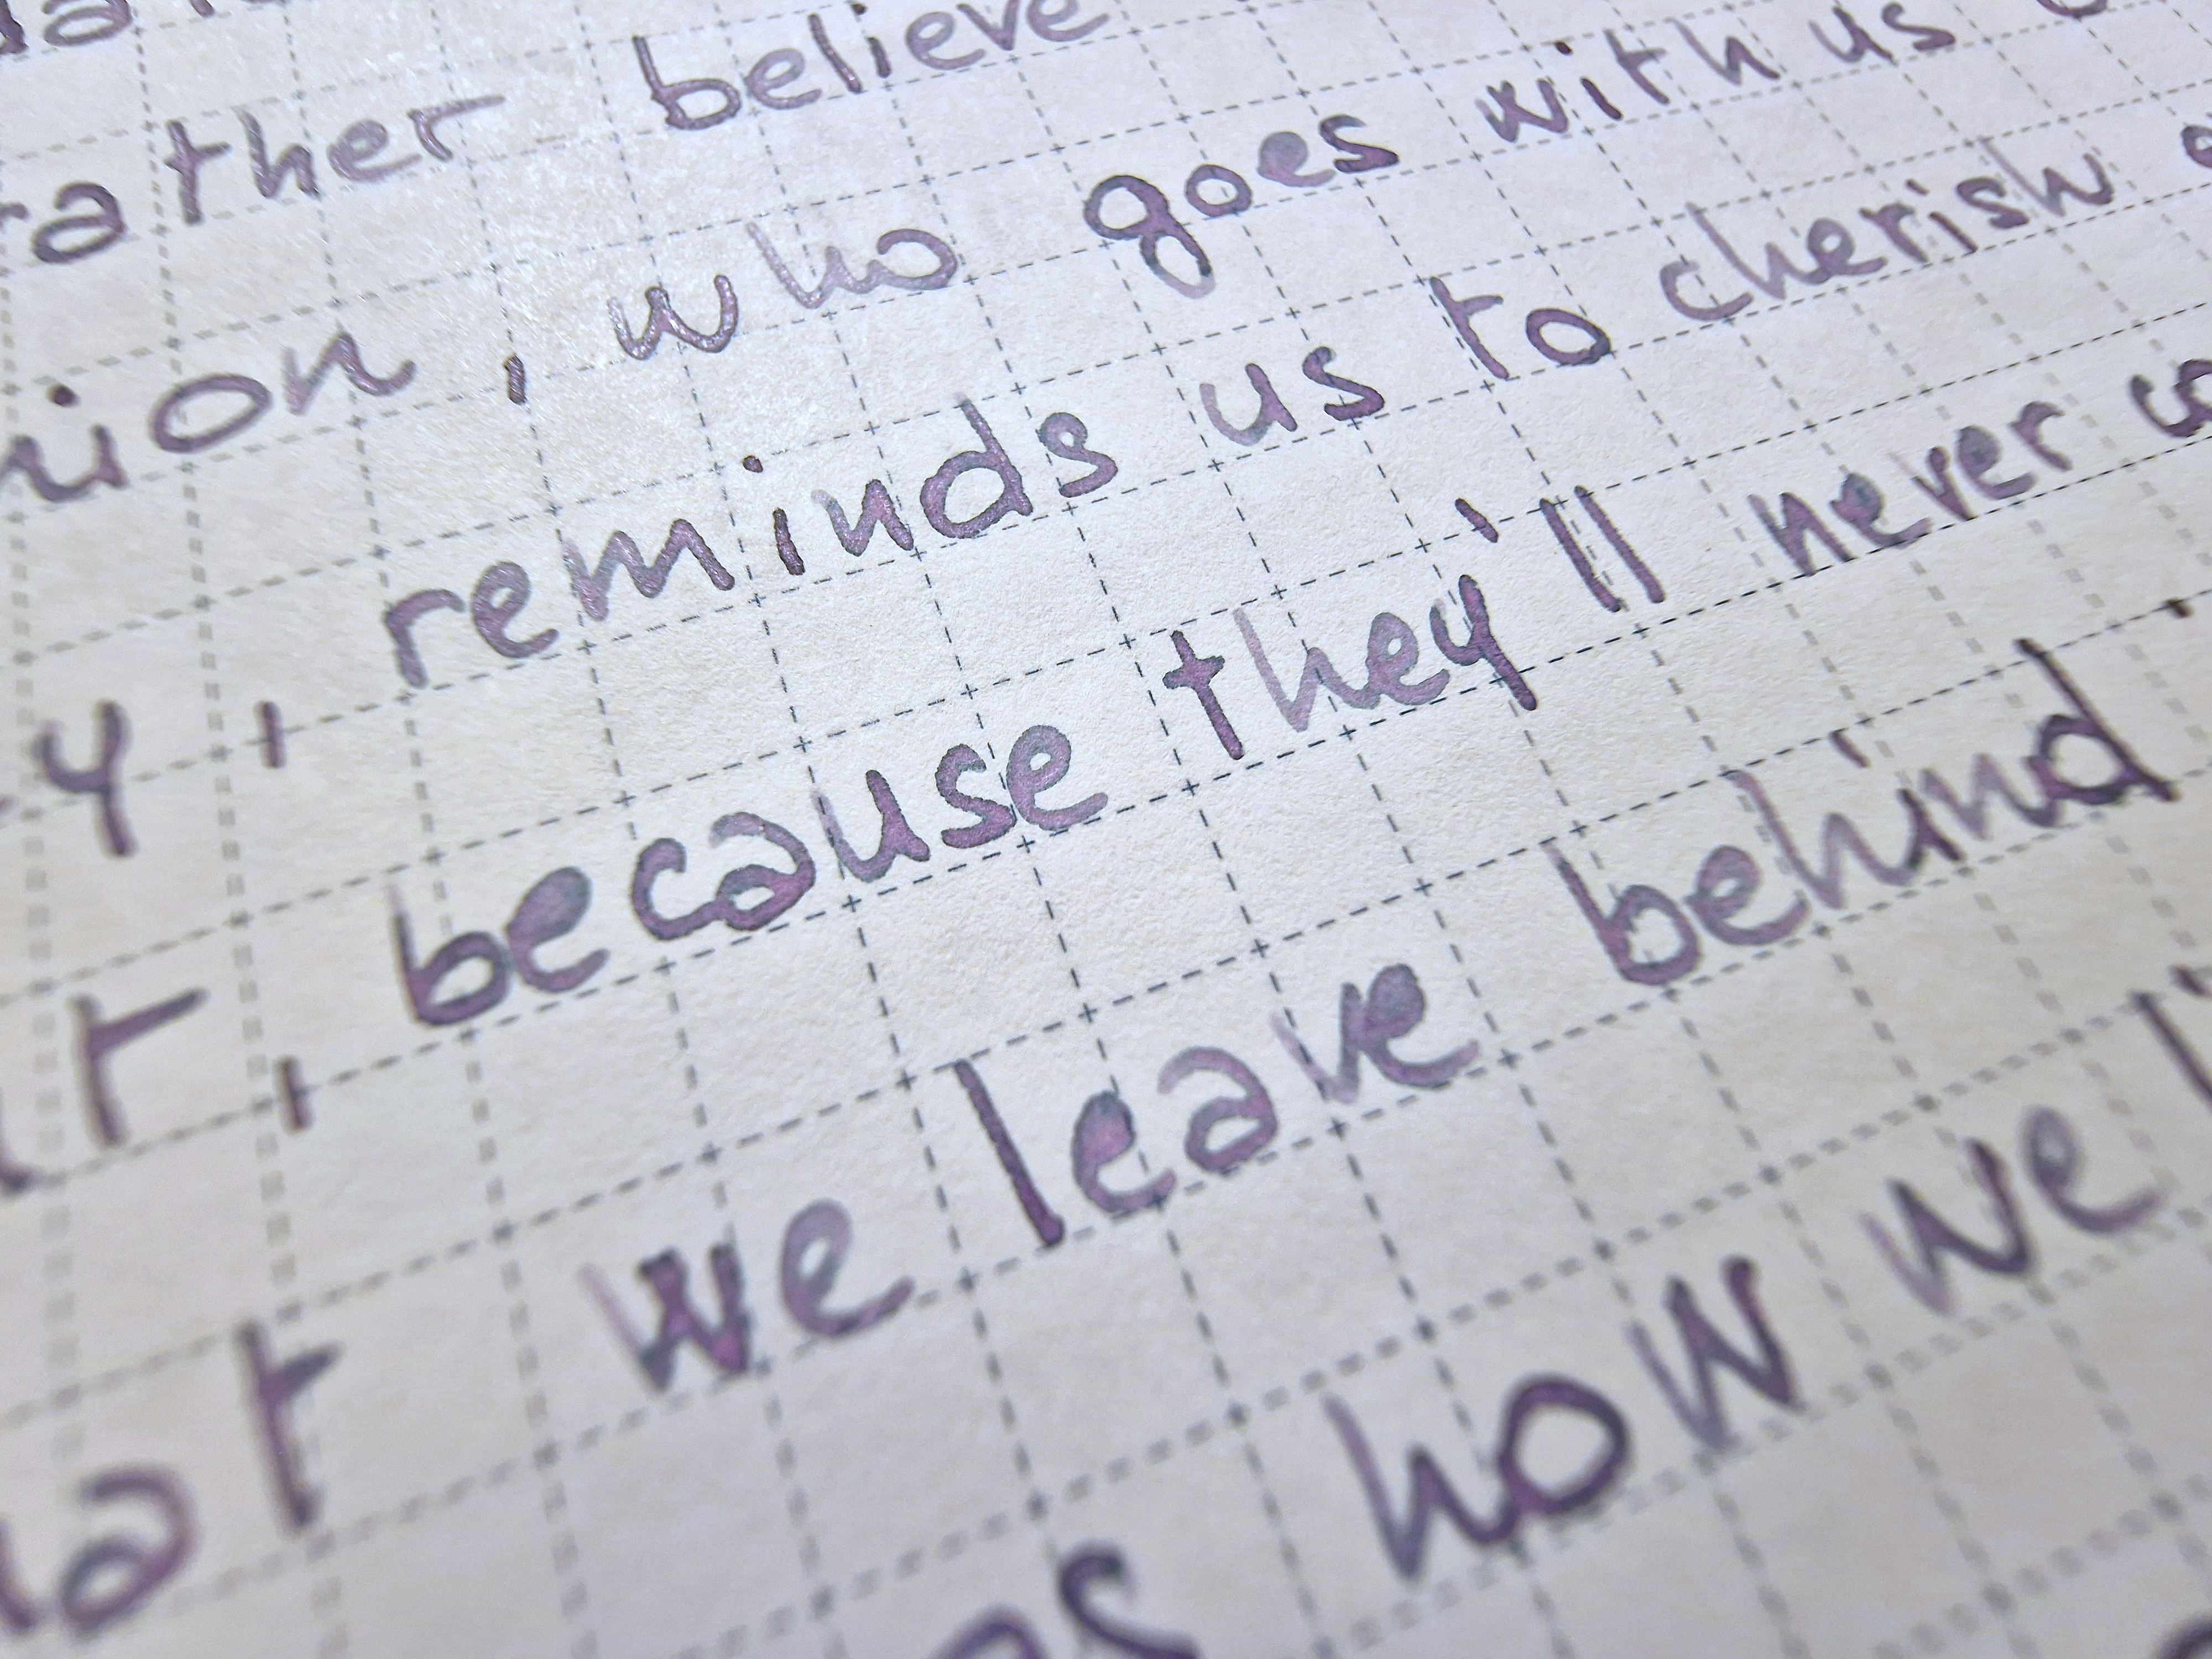 rather believe
, who goes with us
, reminds us to cherish
, because they'll never
we leave behind
how we